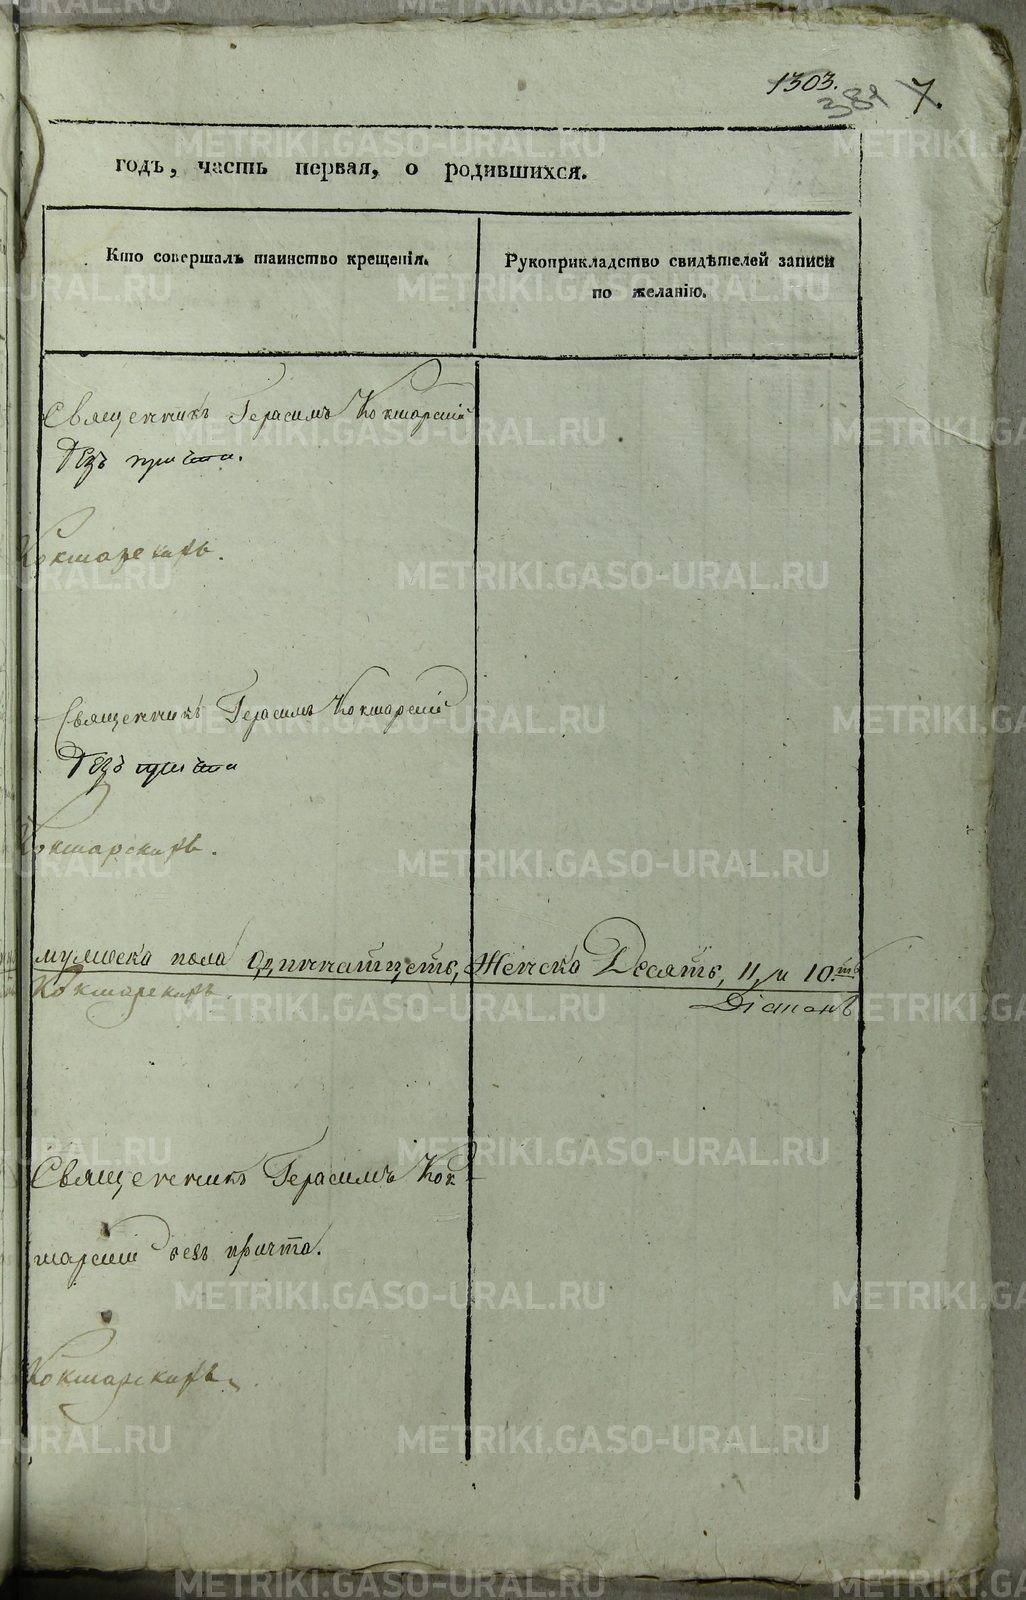 1303.
381 7.
годъ, часть первая, о родившихся.
Кто совершалъ таинство крещенія.
Рукоприкладство свидѣтелей записи
по желанію.
Священникъ Герасимъ Кокшарскій
безъ причта.
Кокшарскій
Священникъ Герасимъ Кокшарскій
безъ причта
Кокшарскій
мужеска пола одиннатцеть, Женска Десять, 11, и 10.ть
Діаконъ
Священникъ Герасимъ Кок
шарскій безъ причта.
METRIKI.GASO-URAL.RU